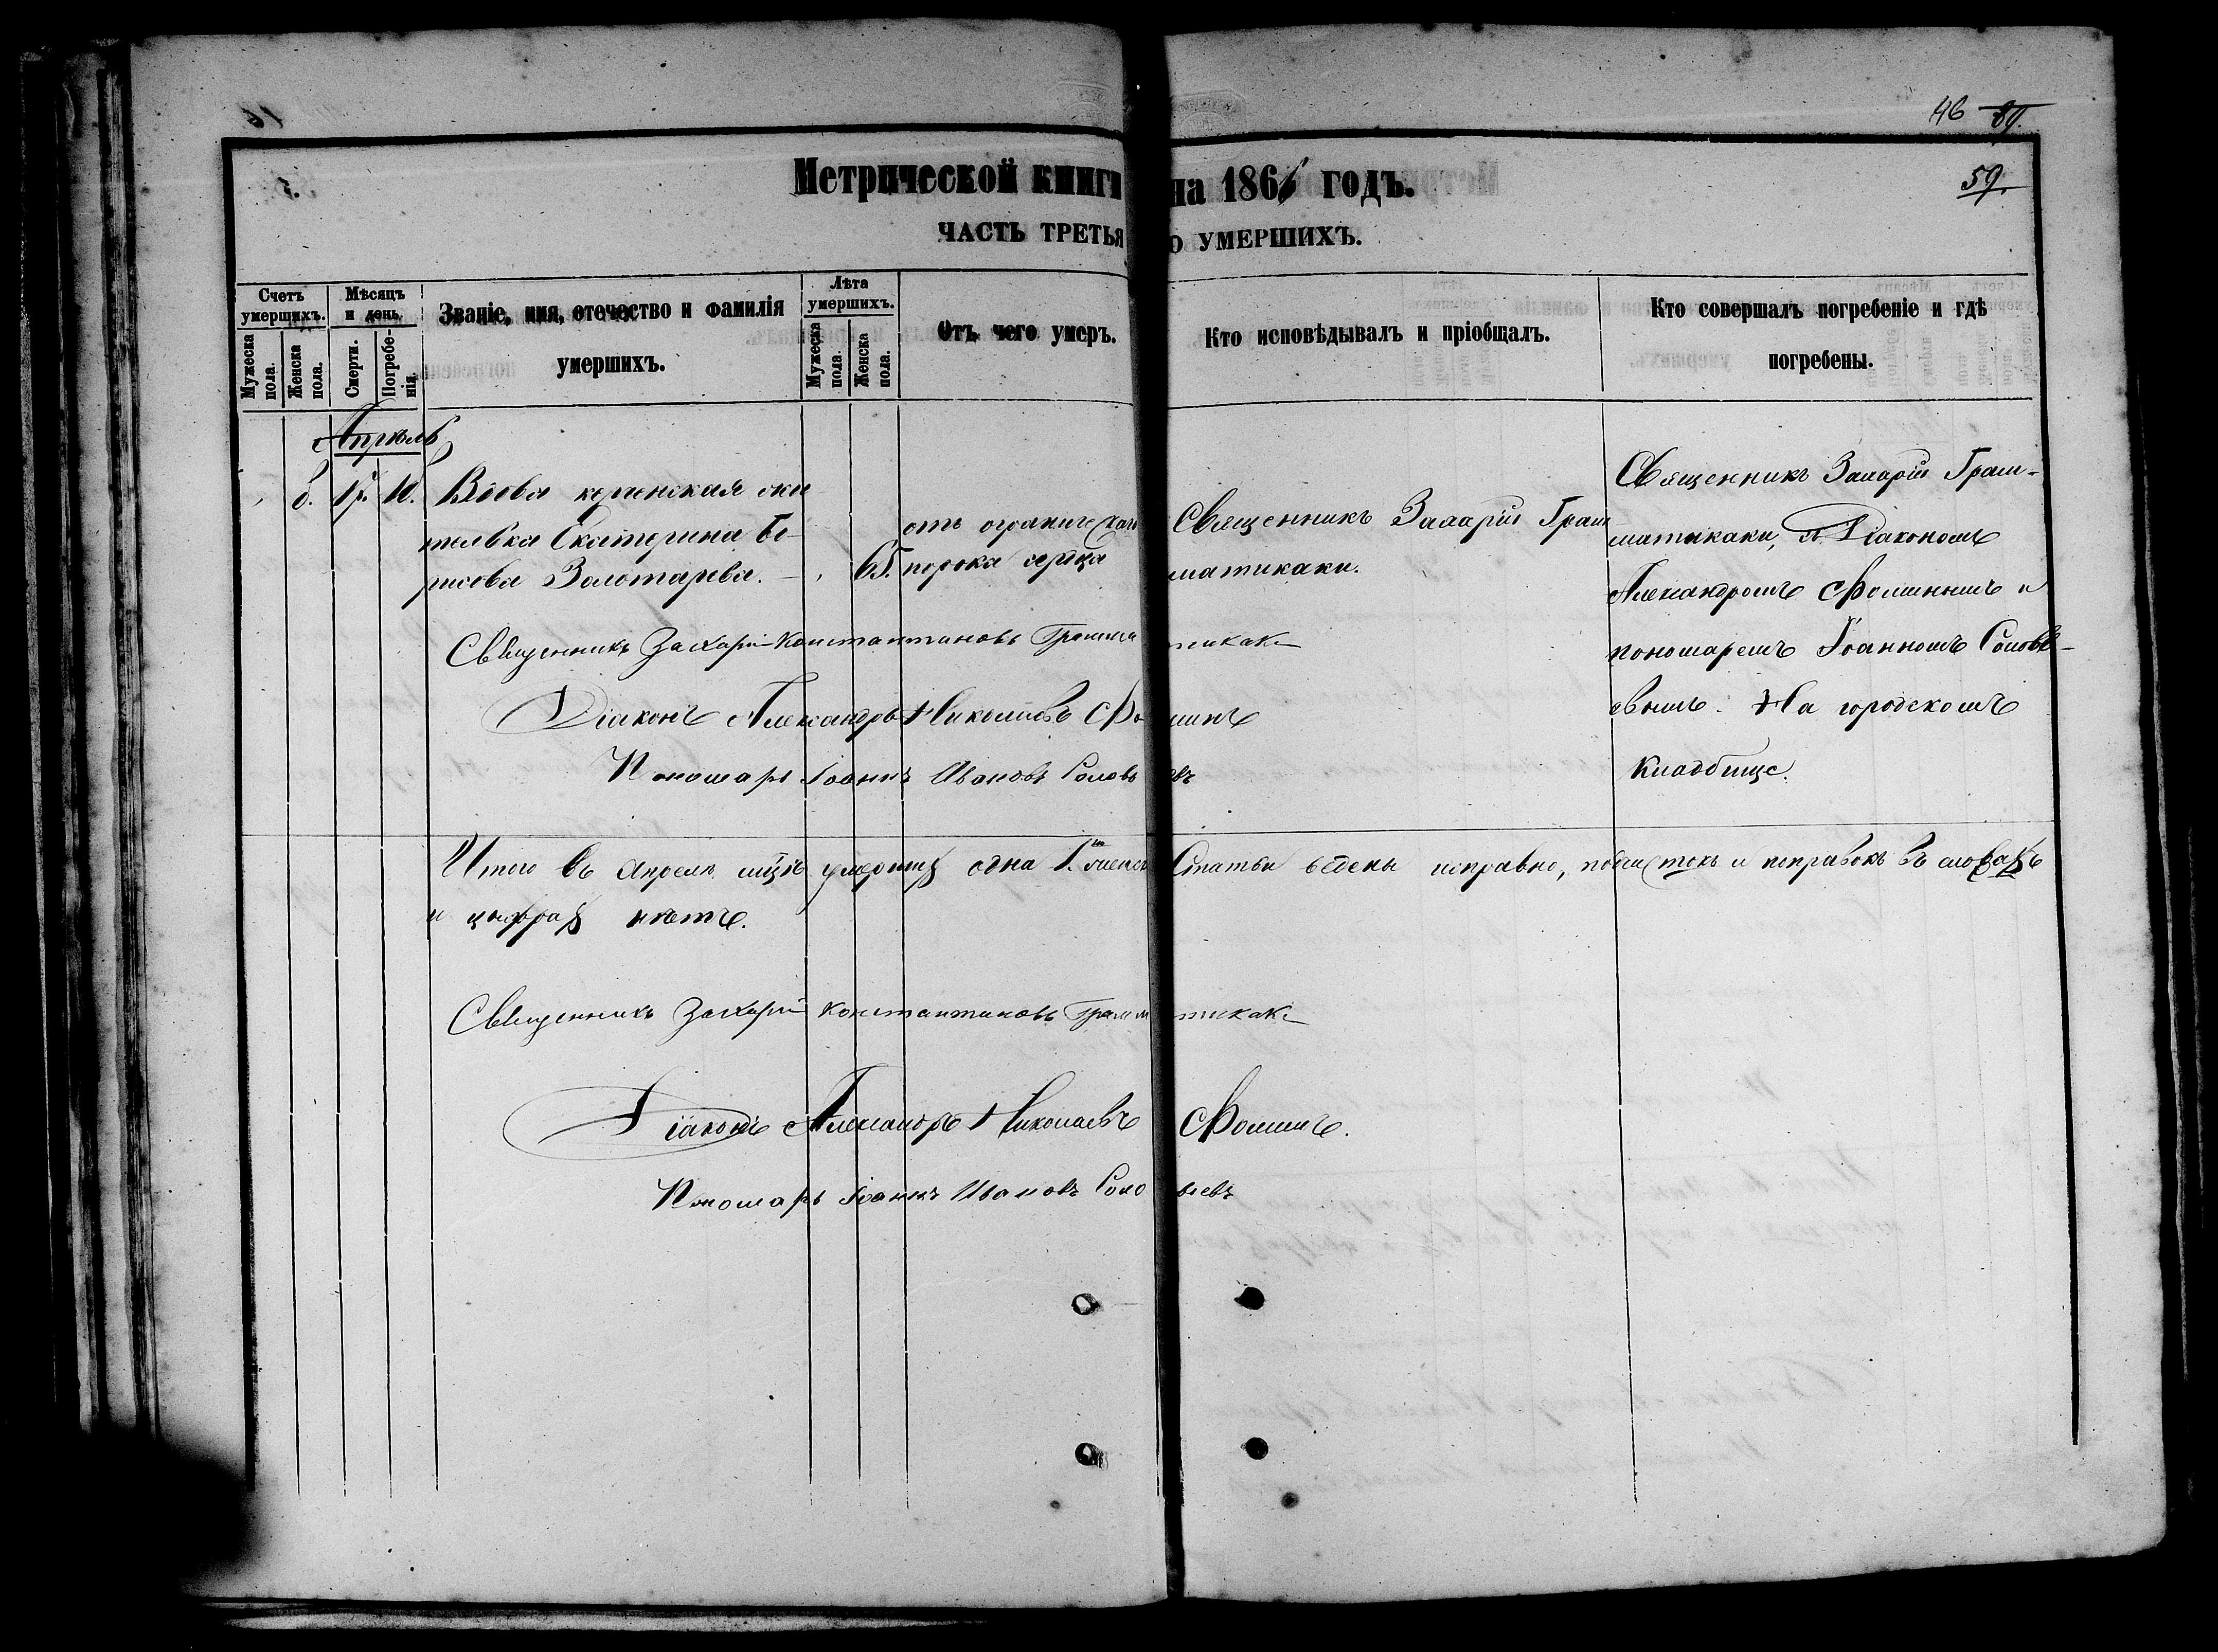 46 89.
59.
Метрической книги на 1866 годъ.
ЧАСТЬ ТРЕТЬЯ О УМЕРШИХЪ.
Счетъ умершихъ.
Мужеска пола.
Женска пола.
Мѣсяцъ и день.
Смерти.
Погребенія.
Званіе, имя, отечество и фамилія
умершихъ.
Лѣта умершихъ.
Мужеска пола.
Женска пола.
Отъ чего умеръ.
Кто исповѣдывалъ и пріобщалъ.
Кто совершалъ погребеніе и гдѣ
погребены.
Апрѣль
Вдова керченская жи
тельвка Екатерина Бо-
рисова Золотарева.
65.
отъ органическаго
порока сердца
Священникъ Захарій Грам
матикаки.
Священникъ Захарій Грам-
матикаки, съ Діакономъ
Александромъ Фоминымъ и
пономаремъ Іоанномъ Соловье-
евымъ. На городскомъ
кладбище.
Священникъ Захарій Константиновъ Грамматикаки
Діаконъ Александръ Николаевъ Фоминъ
Пономарь Іоаннъ Ивановъ Соловьевъ
Итого въ Апрелѣ мцѣ умерших одна 1. женск Статьи ведены исправно, подчистокъ и поправокъ въ словахъ
и цифрах нѣтъ.
Священникъ Захарій Константиновъ Грамматикаки
Діаконъ Александръ Николаевъ Фоминъ.
Пономарь Іоаннъ Ивановъ Соловьевъ